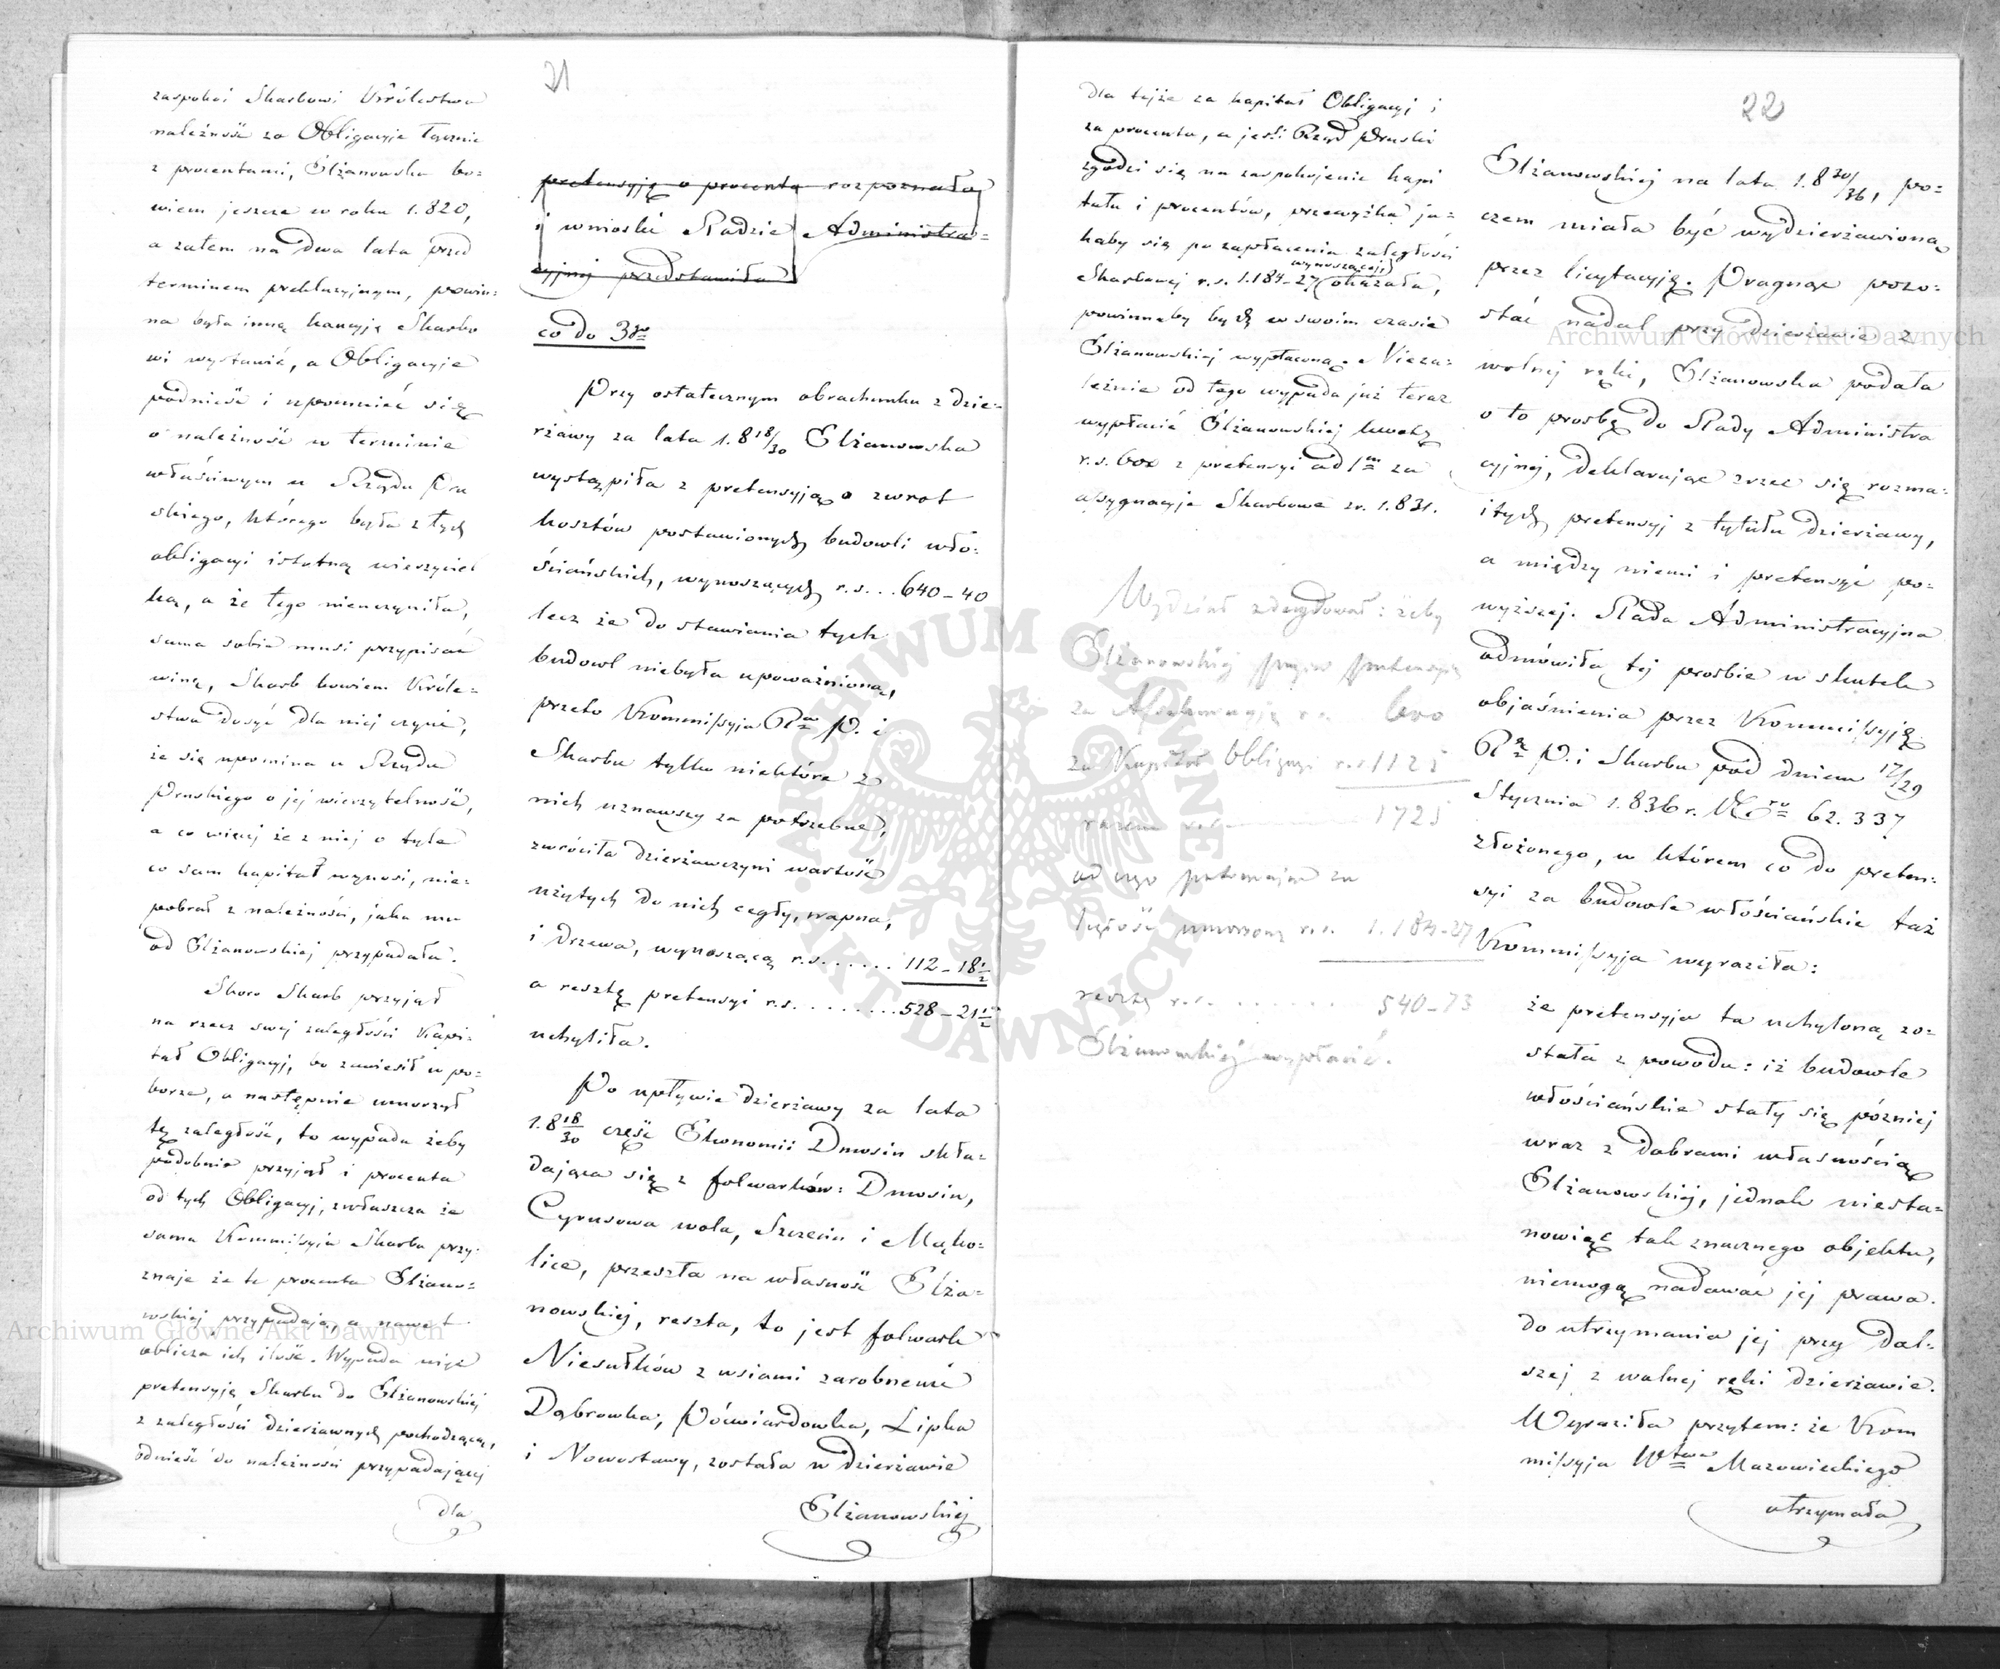 21
zaspokoi Skarbowi Królestwa
należność za Obligacyje łącznie
z procentami, Elżanowska bo-
wiem jeszcze w roku 1.820,
a zatem na dwa lata przed
terminem prekluzyjnym, powin-
na była inną kaucyją Skarbo
wi wystawić, a Obligacyje
podnieść i upomnieć się
o należność w terminie
właściwym u Rządu Pru
skiego, którego była z tych
obligacyi istotną wierzyciel
ką, a że tego nieuczyniła,
sama sobie musi przypisać
winę, Skarb bowiem Króle-
stwa dosyć dla niej czyni,
że się upomina u Rządu
Pruskiego o jej wierzytelność,
a co więcej że z niej o tyle
co sam kapitał wynosi, nie-
pobrał z należności, jaka mu
od Elżanowskiej przypadała.
Skoro Skarb przyjął
na rzecz swej zaległości Kapi-
tał Obligacyj, bo zawiesił w po-
borze, a następnie umorzył
tę zaległość, to wypada żeby
podobnie przyjął i procenta
od tych Obligacyj, zwłaszcza że
sama Kommissyja Skarbu przy-
znaje że te procenta Elżano-
wskiej przypadają, a nawet
oblicza ich ilość. Wypada więc
pretensyją Skarbu do Elżanowskiej
z zaległości dzierżawnych pochodzącą,
odnieść do należności przypadającej
dla
pretensyją o procenta rozpoznała
i wnioski Radzie Administra-
cyjnej przedstawiła
co do 3go
Przy ostatecznym obrachunku z dzie-
rżawy za lata 1.818/30 Elżanowska
wystąpiła z pretensyją o zwrot
kosztów postawionych budowli wło-
ściańskich, wynoszących r.s... 640-40
lecz że do stawiania tych
budowl niebyła upoważnioną,
przeto Kommissyja Rwa P. i
Skarbu tylko niektóre z
nich uznawszy za potrzebne,
zwróciła dzierżawczyni wartość
użytych do nich cegły, wapna,
i drzewa, wynoszącą r.s...... 112-18½
a resztę pretensyi r.s. ........ 528-21½
uchyliła.
Po upływie dzierżawy za lata
1.818/30 część Ekonomii Dmosin skła-
dająca się z folwarków: Dmosin,
Cyrusowa wola, Szczecin i Mąko-
lice, przeszła na własność Elża-
nowskiej, reszta, to jest folwark
Niesułków z wsiami zarobnemi
Dąbrowka, Poćwiardowka, Lipka
i Nowostawy, została w dzierżawie
Elżanowskiej
22
dla tejże za kapitał Obligacyj i
za procenta, a jeśli Rząd Pruski
zgodzi się na zaspokojenie kapi
tału i procentów, przewyżka ja-
kaby się po zapłaceniu zaległości
Skarbowej r.s. 1.184-27 wynoszącej, okazała,
powinnaby być w swoim czasie
Elżanowskiej wypłaconą. Nieza-
leżnie od tego wypada już teraz
wypłacić Elżanowskiej kwotę
r.s. 600 z pretensyi ad 1m za
assygnacyje Skarbowe z r. 1.831.
Wydział zdecydował: żeby
Elżanowskiej pretensyją
za r.s. 600
za Kapitał Obligacyi r.s. 1125
razem r.s. 1725
od czego za
ległość umorzoną r.s. 1.184-27
resztę r.s. ........ 540-73
Elżanowskiej wypłacić.
Elżanowskiej na lata 1.830/36, po-
czem miała być wydzierżawioną
przez licytacyją. Pragnąc pozo-
stać nadal przy dzierżawie z
wolnej ręki, Elżanowska podała
o to prośbę do Rady Administra
cyjnej, deklarując zrzec się rozma-
itych pretensyj z tytułu dzierżawy,
a między niemi i pretensyi po-
wyższej. Rada Administracyjna
odmówiła tej prośbie w skutek
objaśnienia przez Kommissyją
R P. i Skarbu pod dniem 17/29
Stycznia 1.836 r. No 62.337
złożonego, w którem co do preten-
syi za budowle włościańskie taż
Kommissyja wyraziła:
że pretensyja ta uchyloną zo-
stała z powodu: iż budowle
włościańskie stały się później
wraz z dobrami własnością
Elżanowskiej, jednak niesta-
nowiąc tak znacznego objektu,
niemogą nadawać jej prawa
do utrzymania jej przy dal-
szej z wolnej ręki dzierżawie.
Wyraziła przytem: że Kom
missyja Wtwa Mazowieckiego
otrzymała
ARCHIWUM GŁÓWNE AKT DAWNYCH
Archiwum Główne Akt Dawnych
Archiwum Główne Akt Dawnych